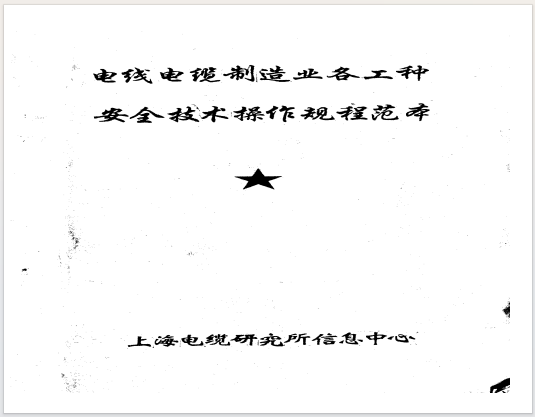 电线电缆制造业各工种
安全技术操作规程范本
上海电缆研究所信息中心